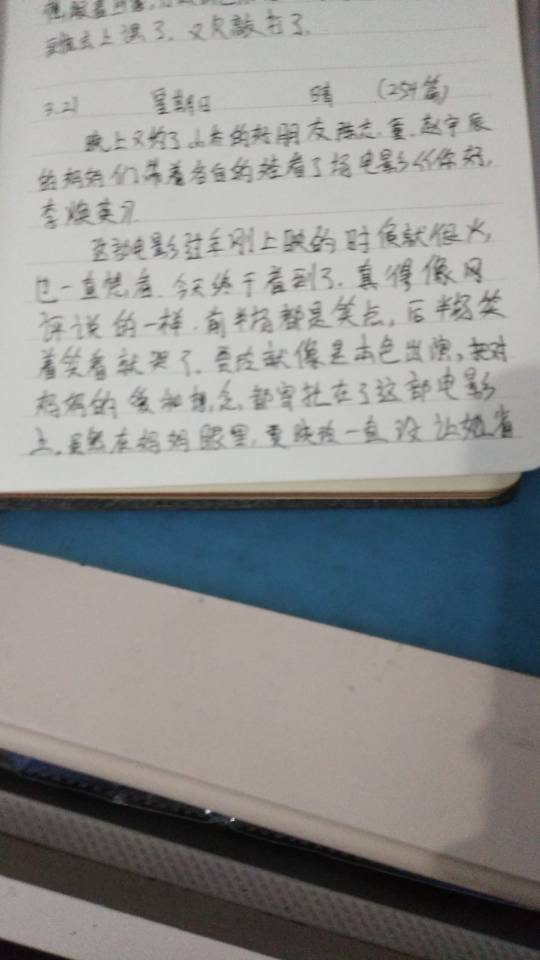 上课了，又欠敲打了。
3.21 星期日 晴 (254篇)
晚上又约了小右的好朋友陈志、董、赵宇辰
的妈妈们带着各自的娃看了场电影《你好，
李焕英》
这部电影过年刚上映的时候就很火，
也一直想看，今天终于看到了，真得像网
评说的一样，前半场都是笑点，后半场笑
着笑着就哭了。贾玲就像是本色出演，把对
妈妈的爱和想念，都穿扎在了这部电影
上。虽然在妈妈眼里，贾晓玲一直没让她省